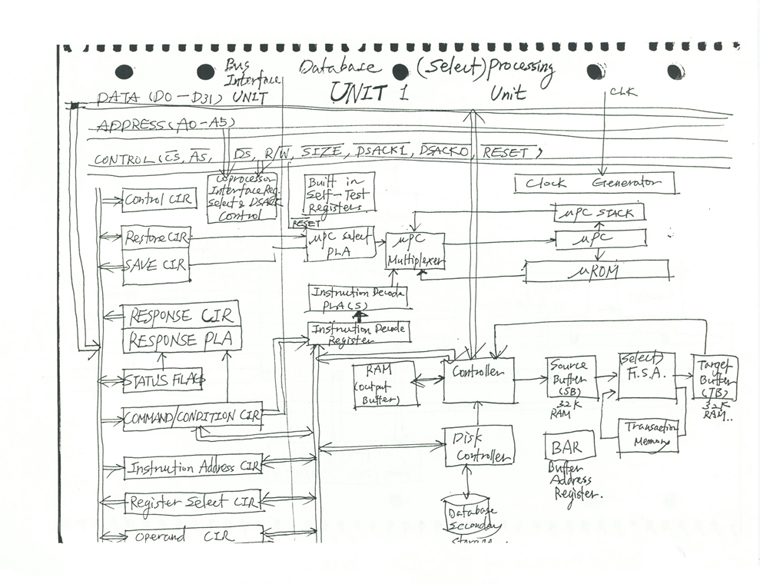 Bus Interface UNIT
Database (Select) Processing
UNIT 1 Unit
CLK
DATA (D0-D31)
ADDRESS (A0-A5)
CONTROL (CS, AS, DS, R/W, SIZE, DSACK1, DSACK0, RESET)
Control CIR
Coprocessor
Interface Reg.
Select & DSACK
Control
Built in
Self-Test
Registers
Clock Generator
RESET
Restore CIR
SAVE CIR
μPC Select
PLA
μPC
Multiplexer
μPC STACK
μPC
μROM
Instruction Decode
PLA(S)
Instruction Decode
Register
RESPONSE CIR
RESPONSE PLA
STATUS FLAGS
COMMAND/CONDITION CIR
RAM
(Output
Buffer)
Controller
Source
Buffer
(SB)
32K
RAM
(Select)
F.S.A.
Target
Buffer
(TB)
32K
RAM..
Transaction
Memory
Disk
Controller
BAR
Buffer
Address
Register.
Instruction Address CIR
Register Select CIR
Operand CIR
Database
Secondary